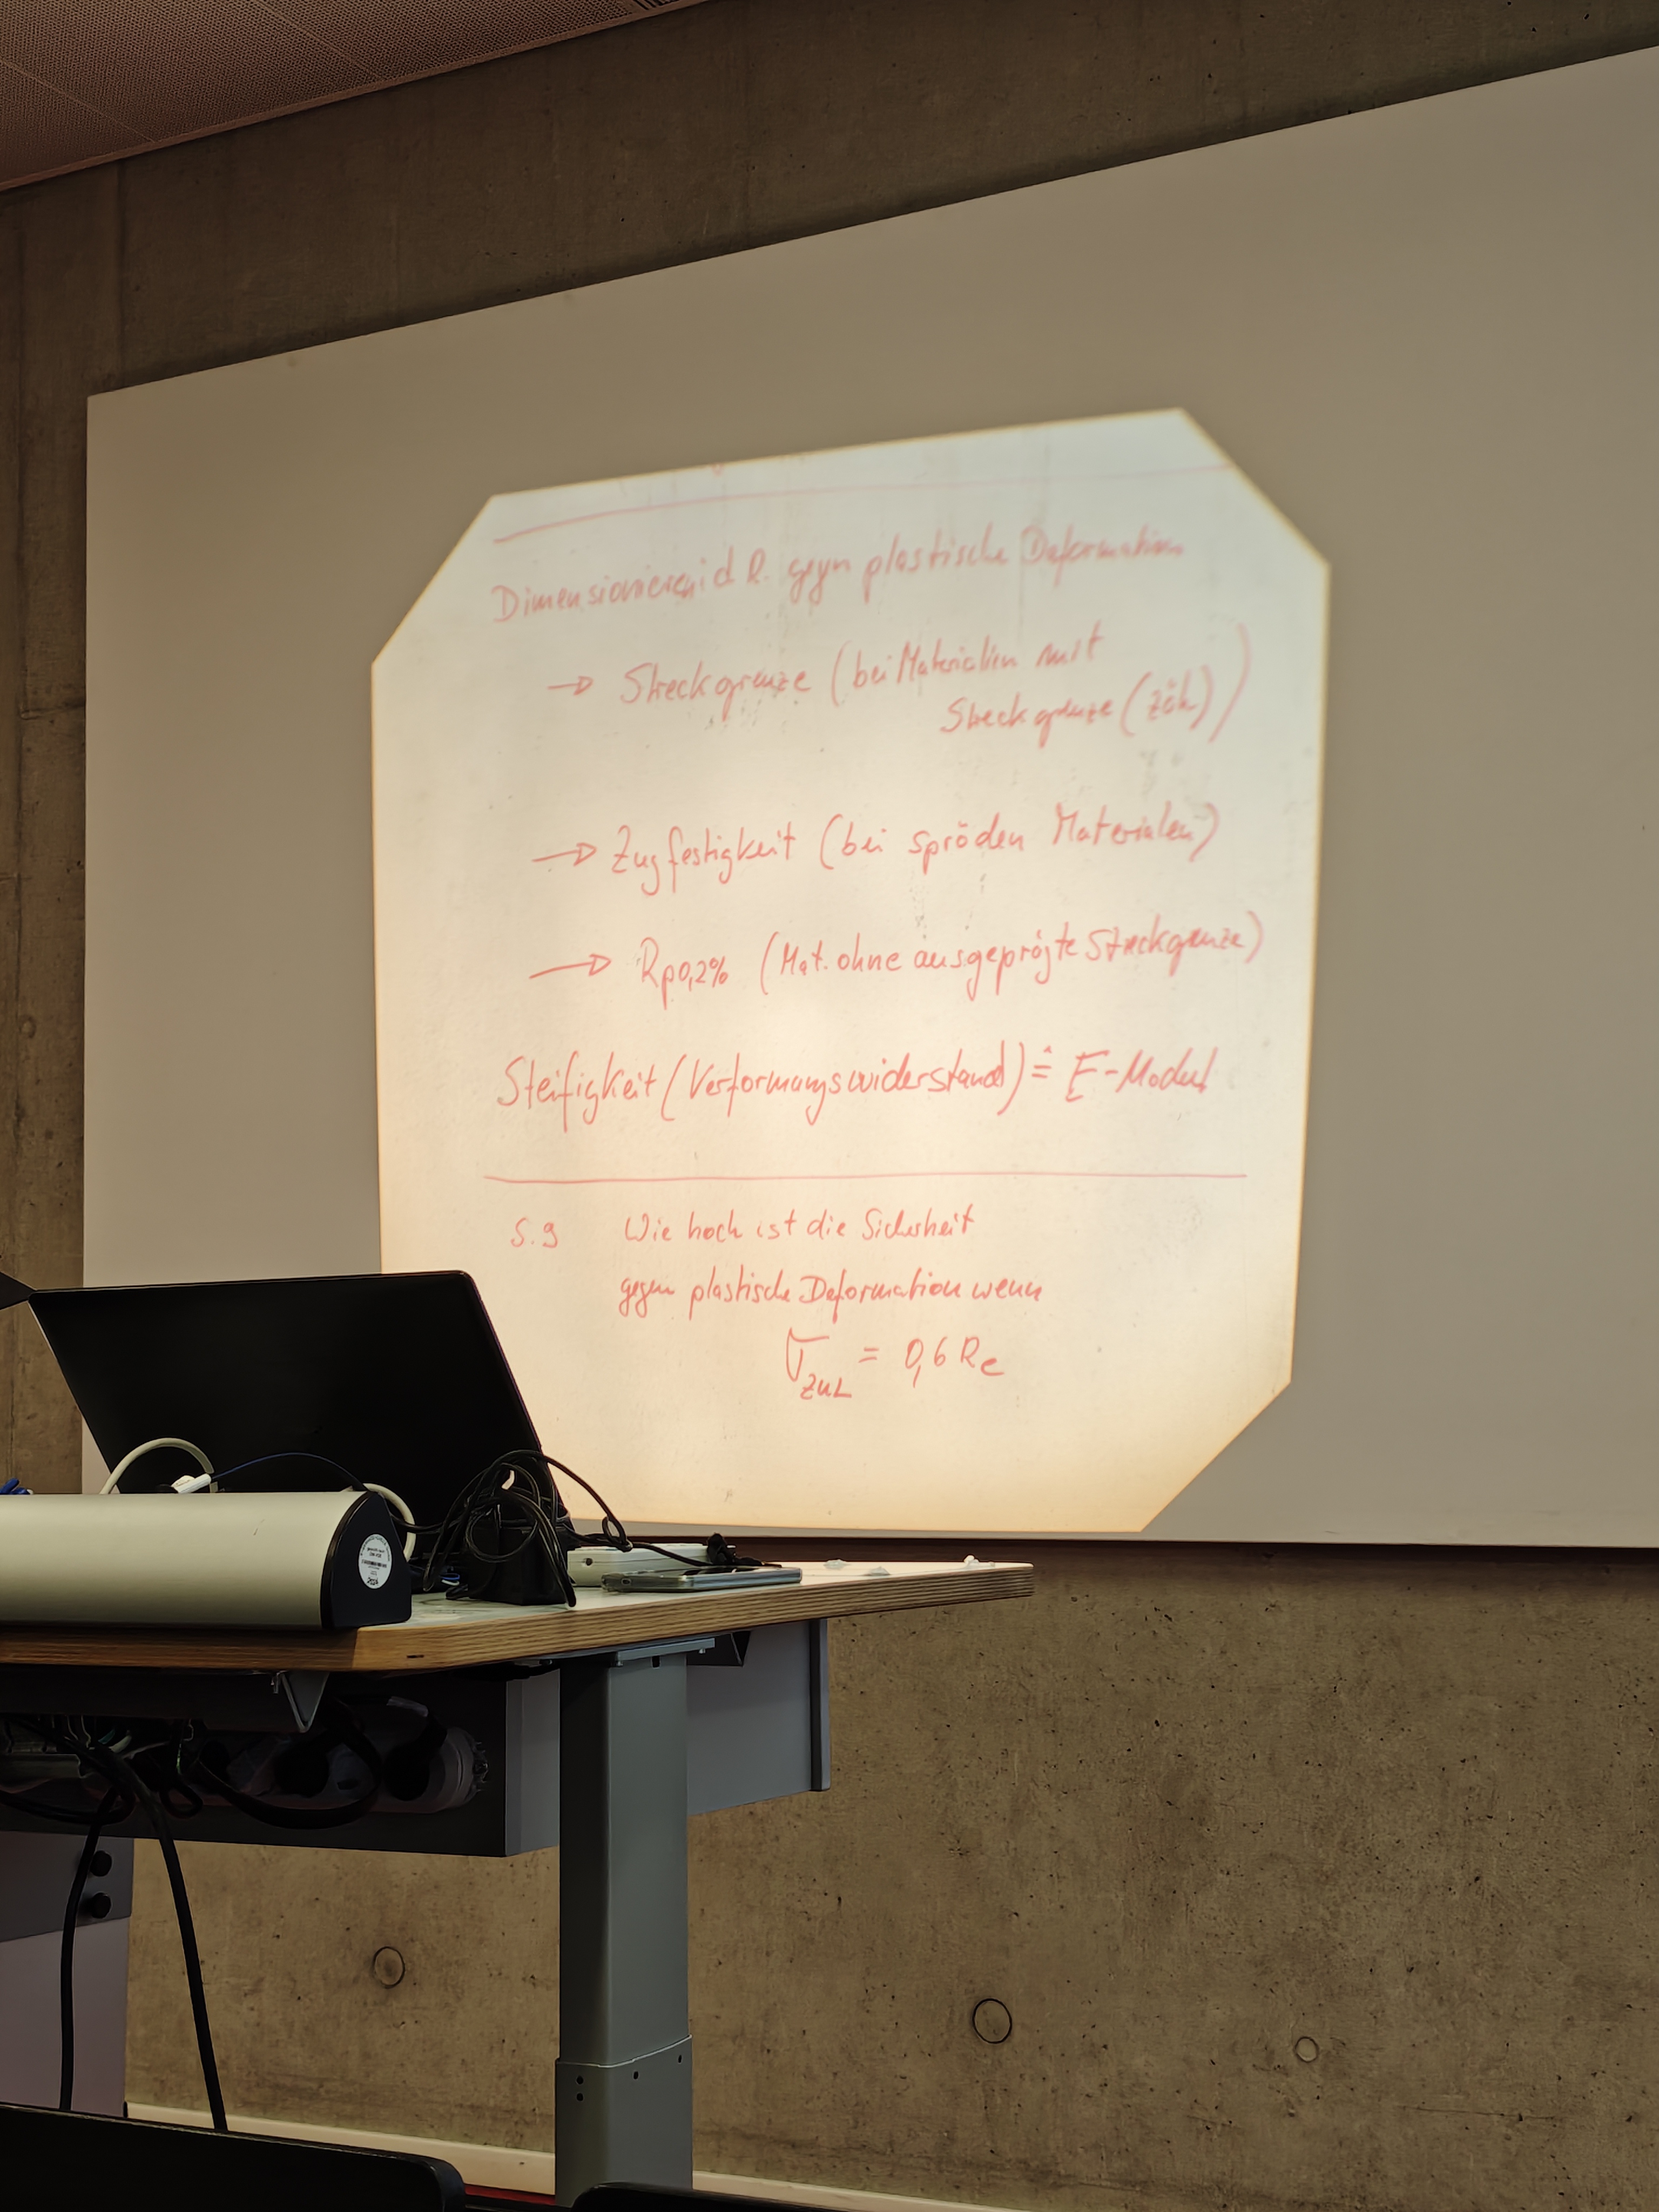 Dimensionieren i d R. gegen plastische Deformation
→ Streckgrenze (bei Materialien mit
Streckgrenze (zäh))
→ Zugfestigkeit (bei spröden Materialen)
→ Rp0,2% (Mat. ohne ausgeprägte Streckgrenze)
Steifigkeit (Verformungswiderstand) ≙ E-Modul
S. 9 Wie hoch ist die Sicherheit
gegen plastische Deformation wenn
σzul = 0,6 Re
2024